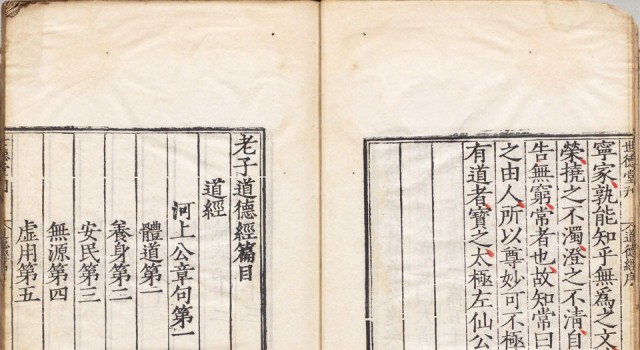 世德堂刊
道德經序
寧家孰能知乎無為之文
榮撓之不濁澄之不清自
告無窮常者也故知常曰
之由人所以尊妙可不極
有道者寶之太極左仙公
老子道德經篇目
道經
河上公章句第一
體道第一
養身第二
安民第三
無源第四
虛用第五